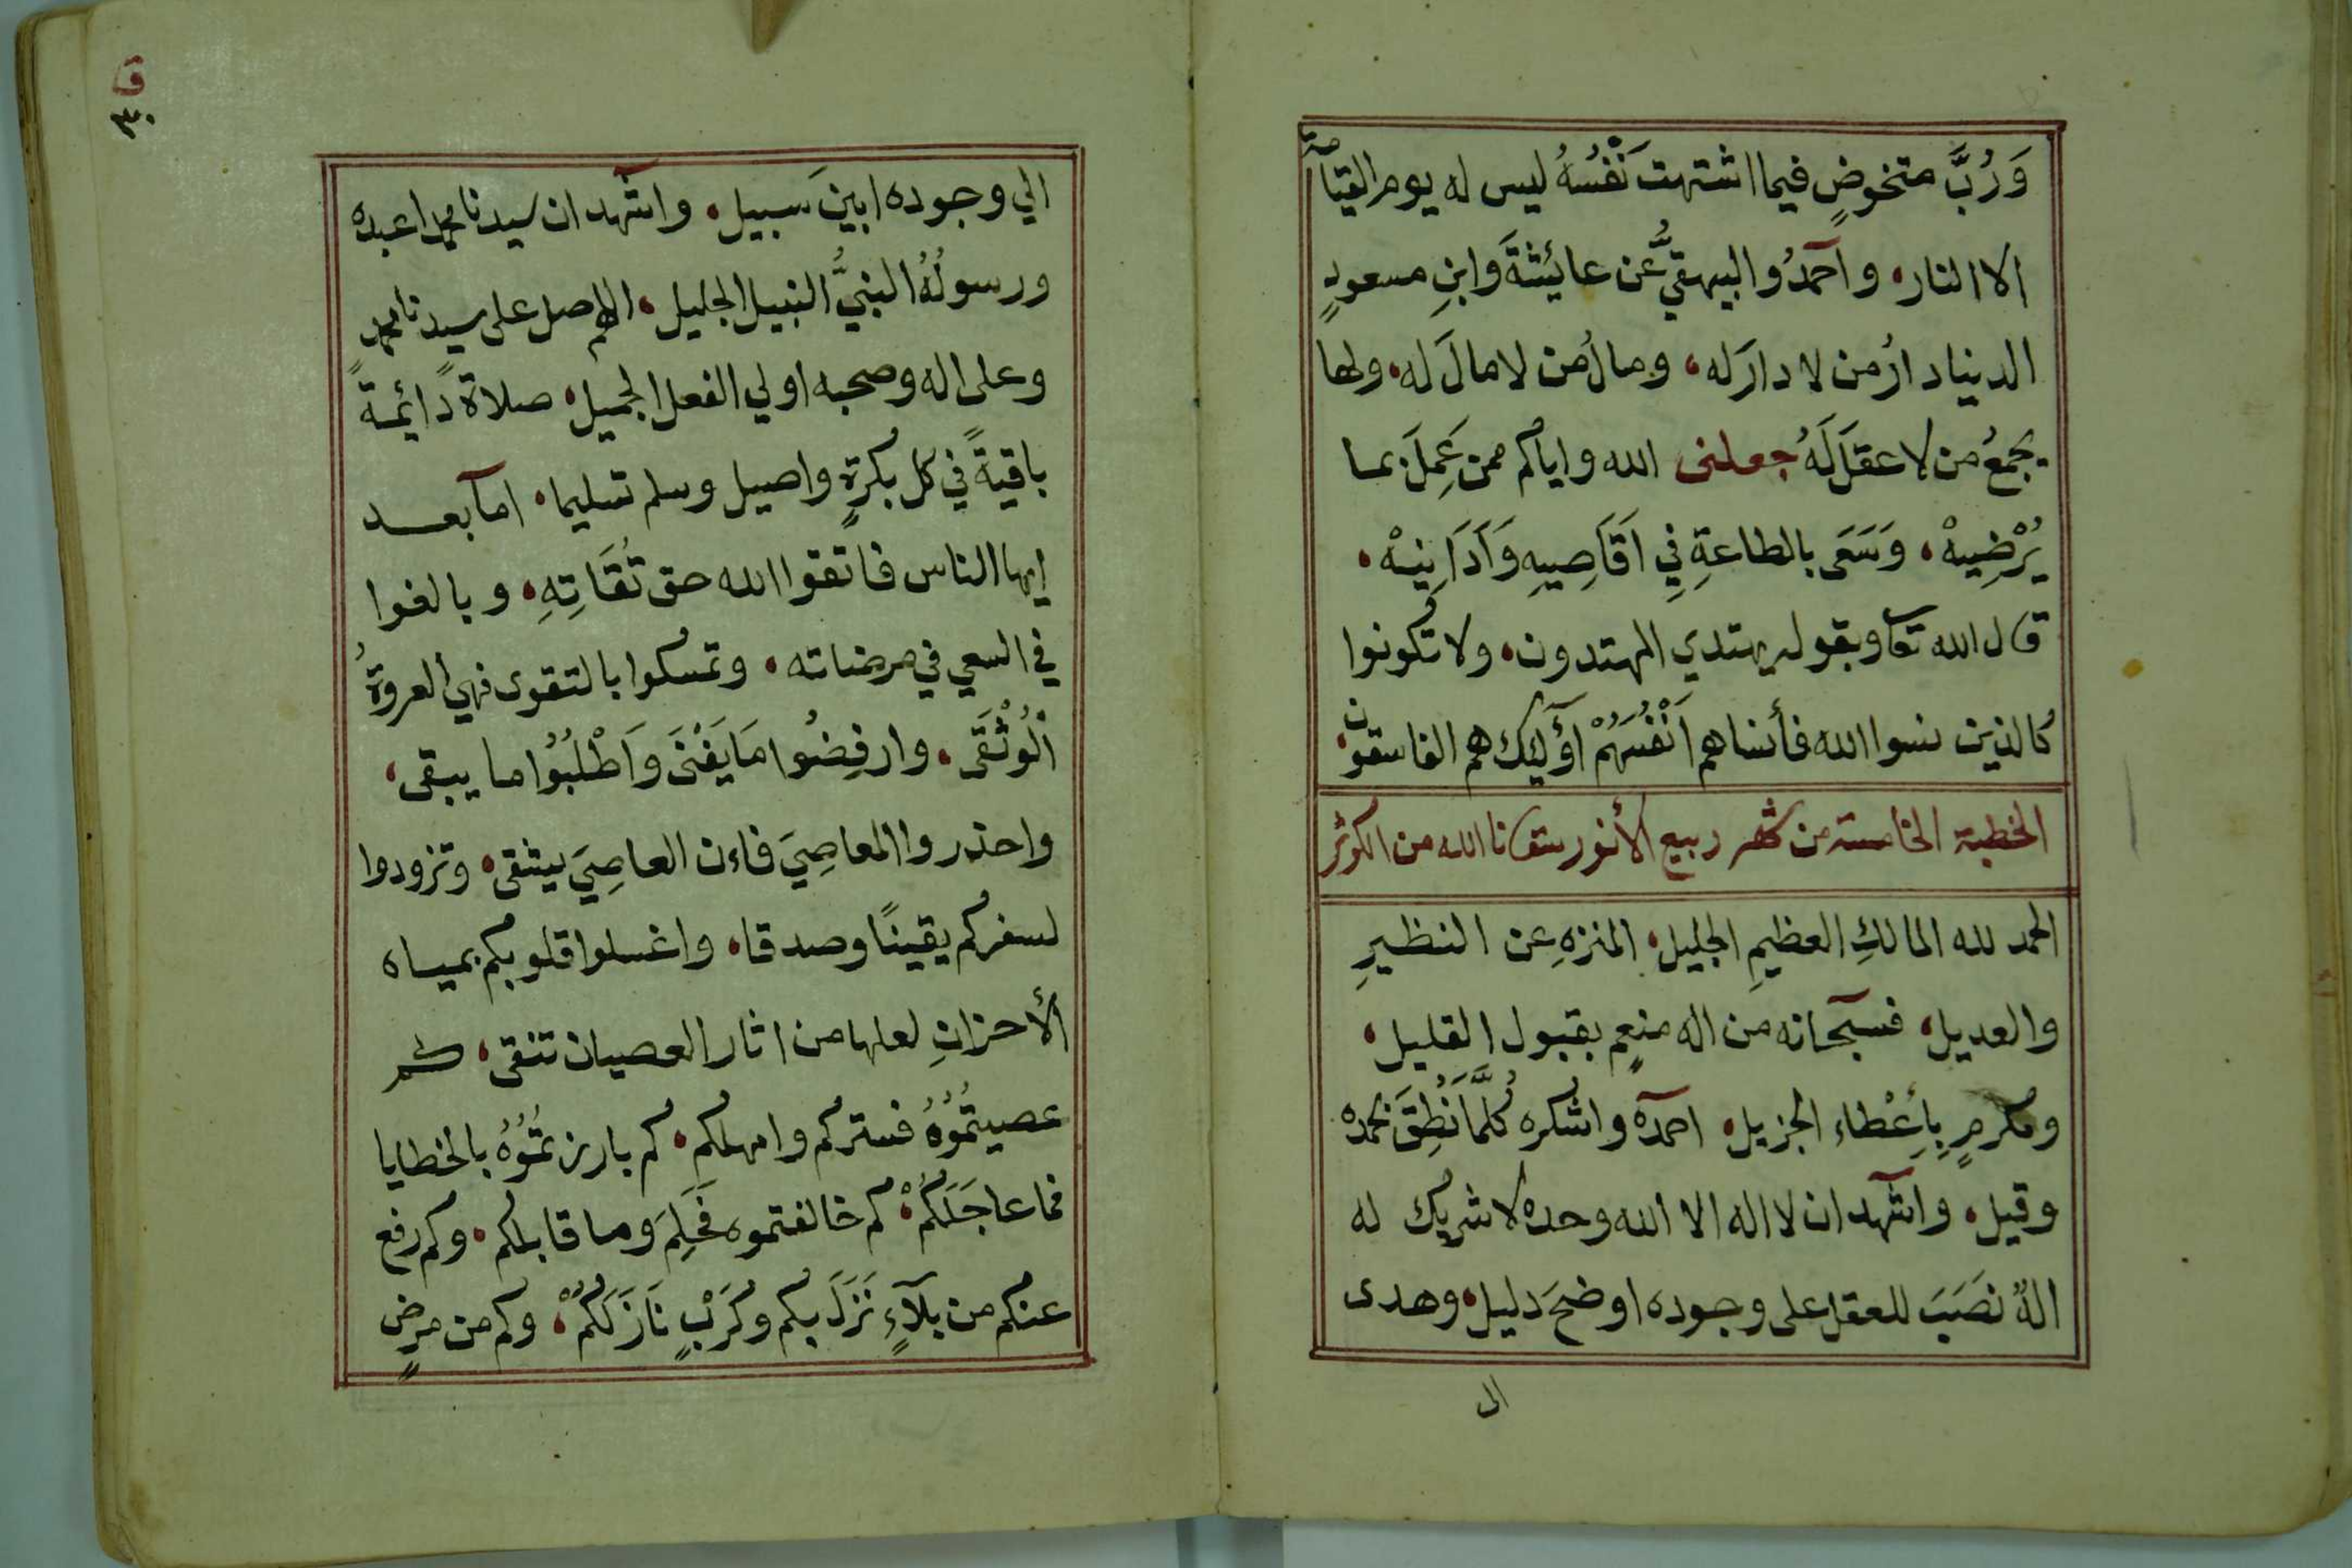 وَرُبَّ متخوضٍ فيما اشتهت نَفْسُهُ ليس له يوم القيامة
الا النار، وآحمدُ والبيهقيُّ عن عائيشةَ وابنِ مسعودٍ
الدنيا دارُ من لا دارَ له، ومالُ من لا مالَ له، ولها
يجمعُ من لا عقلَ لَهُ جعلنى الله واياكم ممن عَمِلَ بما
يُرْضِيهْ، وَسَعَى بالطاعةِ فِي اَقَاصِيهِ وَاَدَانِيهْ،
قال الله تعا وبقوله يهتدي المهتدون، ولا تكونوا
كالذين نسوا الله فأنساهم اَنْفُسَهُمْ اوٓليك هم الفاسقون،
الخطبة الخامسة من شهر ربيع الأنور سقانا الله من الكوثر
الحمد لله المالكِ العظيمِ الجليل، المنزهِ عن النظيرِ
والعديل، فسبحانه من اله منعمٍ بقبول القليل،
ومكرمٍ بِأِعْطاء الجزيل، احمدٓه واشكره كُلَّمَا نَطَقَ بحمده
وقيل، واشهد ان لا اله الا الله وحده لا شريك له
الهٌ نصَبَ للعقل على وجوده اوضحَ دليل، وهدى
الى
ق
٣٠
الي وجوده ابينَ سبيل، واشهد ان سيدنا محمدا عبده
ورسولُهُ النبيُّ النبيل الجليل، اللهم صل على سيدنا محمد
وعلى اله وصحبه اولي الفعل الجميل، صلاةً دائيمةً
باقيةً في كل بكرةٍ واصيل وسلم تسليما، امآ بعد
ايها الناس فاتقوا الله حق تُقَاتِهِ، وبالغوا
في السعي في مرضاته، وتمسكوا بالتقوى فهي العروةُ
الْوُثْقَى، وارفِضُوا مَا يَفْنَى وَاَطْلُبُوا ما يبقى،
واحذروا المعاصِيَ فاءن العاصِيَ يشقى، وتزودوا
لسفركم يقينًا وصدقا، واغسلوا قلوبكم بمياه
الأحزانِ لعلها من اثار العصيان تنقى، كم
عصيتُمُوُهُ فستركم وامهلكم، كم بارزتمُوُهُ بالخطايا
فما عاجَلَكُمْ، كم خالفتموه فَحَلِمَ وما قابلكم، وكم رفع
عنكم من بلآءٍ نَزَلَ بكم وكَرْبٍ نَازَلَكُمْ، وكم من مرضٍ